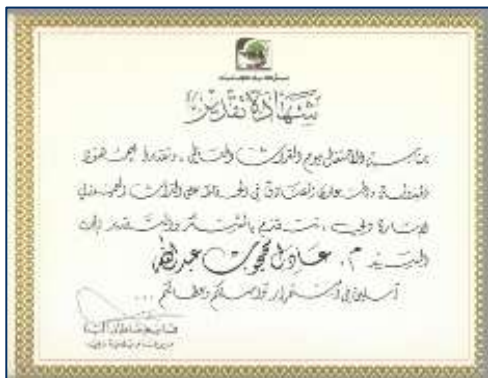 شهادة تقدير
بمناسبة الاحتفال بيوم التراث العالمي، وتقديرا للجهود
المبذولة والتعاون الصادق في الحفاظ على التراث العمراني
لإمارة دبي، نتقدم بالشكر والتقدير إلى
السيد م. عادل محجوب عبدالله
آملين في استمرار تواصلكم وعطائكم ...